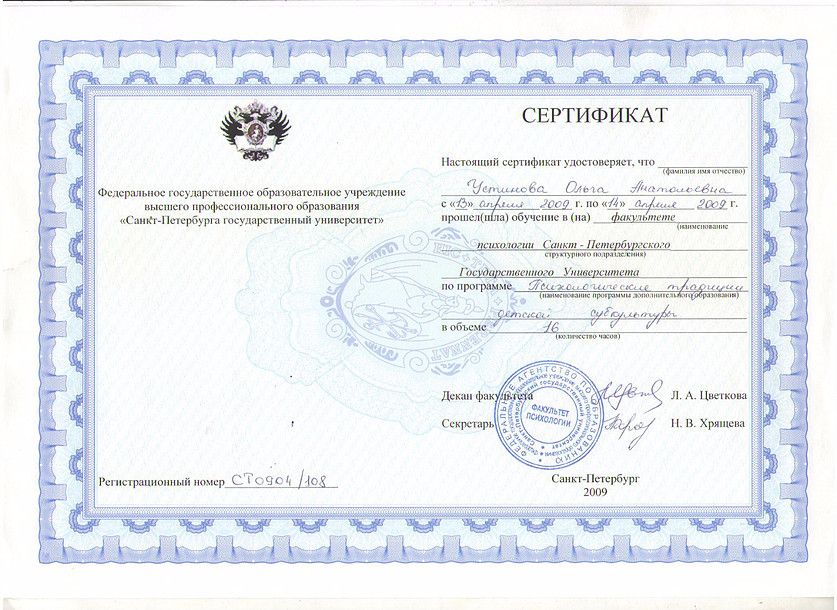 СЕРТИФИКАТ
Федеральное государственное образовательное учреждение
высшего профессионального образования
«Санкт-Петербурга государственный университет»
Регистрационный номер СТ0904/108
Настоящий сертификат удостоверяет, что
(фамилия имя отчество)
Устинова Ольга Анатольевна
с «13» апреля 2009 г. по «14» апреля 2009 г.
прошел(шла) обучение в (на) факультете
(наименование
психологии Санкт - Петербургского
структурного подразделения)
Государственного Университета
по программе Психологические традиции
(наименование программы дополнительного образования)
детской субкультуры
в объеме 16
(количество часов)
Декан факультета Л. А. Цветкова
Секретарь Н. В. Хрящева
ФЕДЕРАЛЬНОЕ АГЕНТСТВО ПО ОБРАЗОВАНИЮ
ФАКУЛЬТЕТ
ПСИХОЛОГИИ
Санкт-Петербург
2009